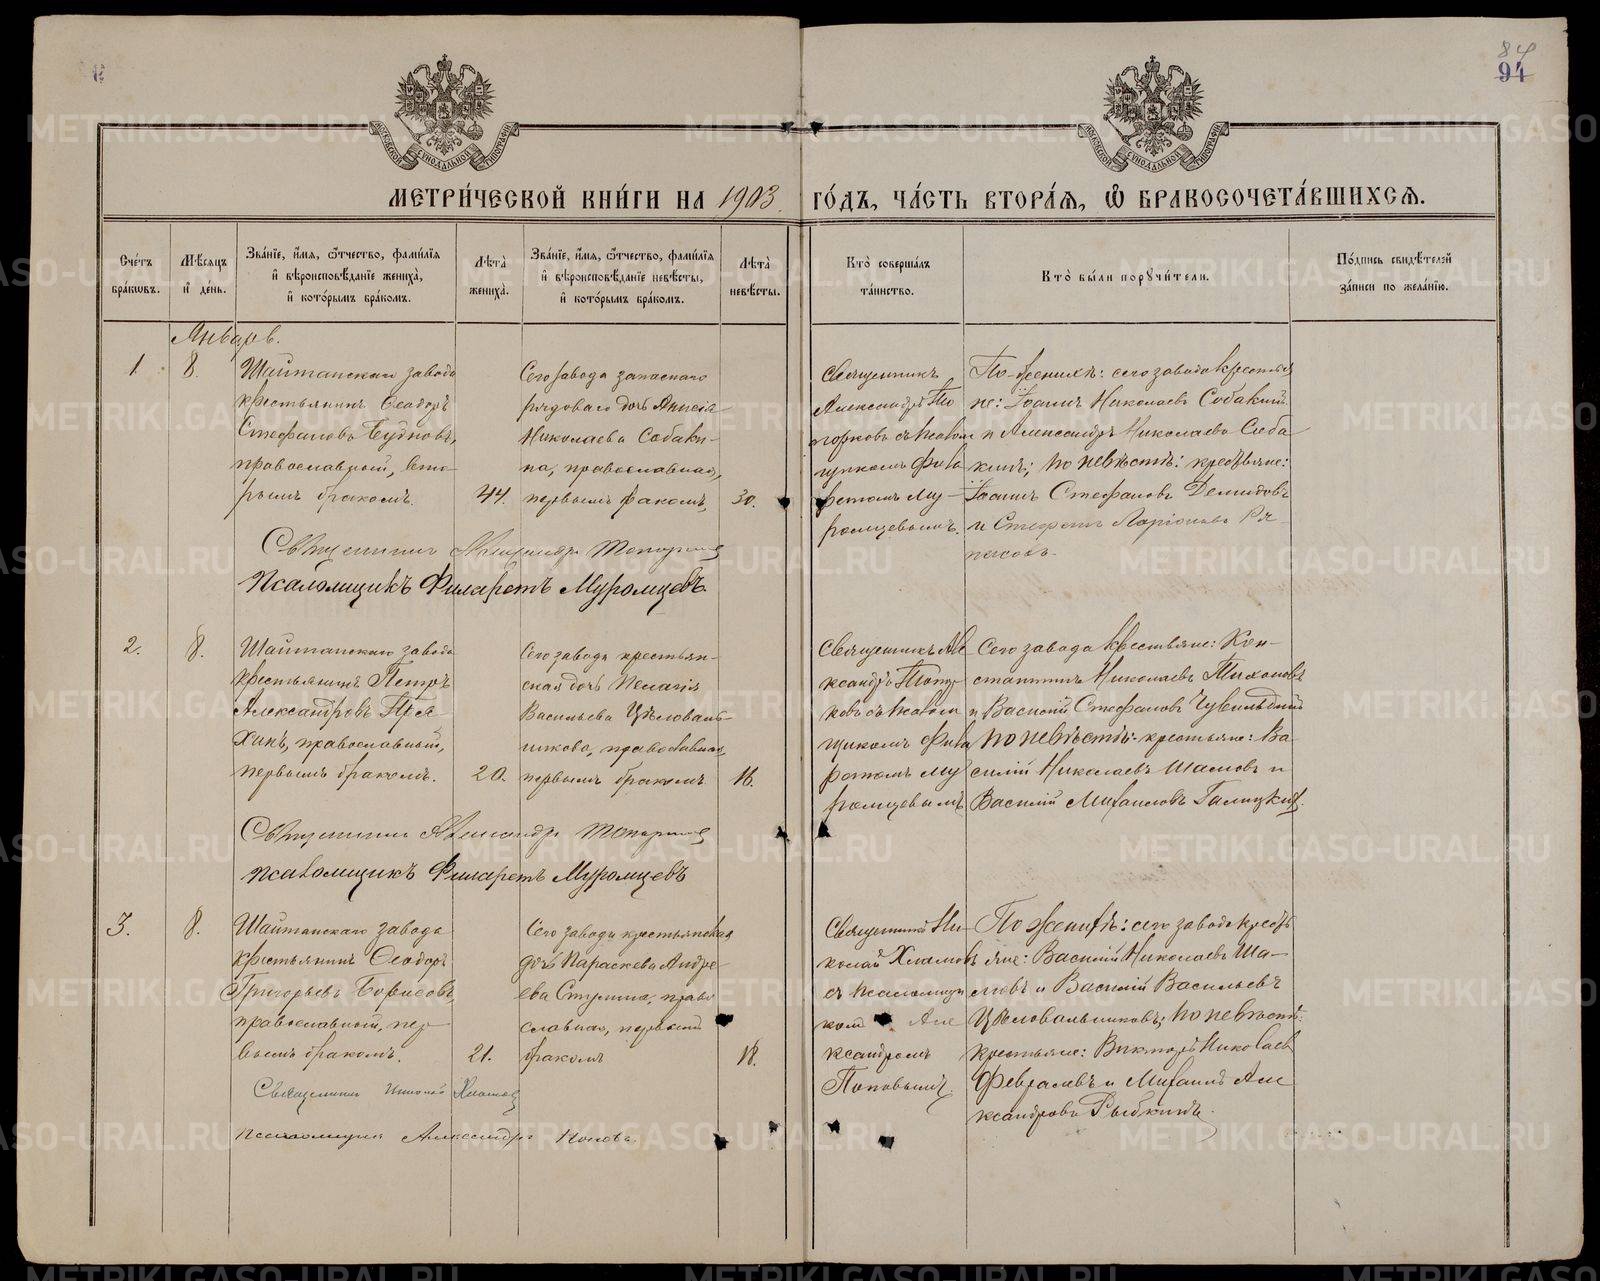 84
94
МЕТРИ́ЧЕСКОЙ КНИ́ГИ НА 1903 ГО́ДЪ, ЧА́СТЬ ВТОРА́Я, Ѡ БРАКОСОЧЕТА́ВШИХСЯ.
Сче́тъ бра́ковъ.
Мѣ́сяцъ и҆ де́нь.
Зва́нїе, и҆́мя, ѻ҆́тчество, фами́лїя
и҆ вѣроисповѣ́данїе жениха̀,
и҆ кото́рымъ бра́комъ.
Лѣ́та̀ жениха̀.
Зва́нїе, и҆́мя, ѻ҆́тчество, фами́лїя
и҆ вѣроисповѣ́данїе невѣ́сты,
и҆ кото́рымъ бра́комъ.
Лѣ́та̀ невѣ́сты.
Кто̀ соверша́лъ
та́инство.
Кто̀ бы́ли порꙋчи́тели.
По́дпись свидѣ́телей
за́писи по жела́нїю.
Январь.
1.
8.
Шайтанскаго завода
крестьянинъ Ѳеодоръ
Стефановъ Будновъ,
православный, вто-
рымъ бракомъ.
44.
Сего завода запаснаго
рядоваго дочь Анисія
Николаева Собаки-
на, православная,
первымъ бракомъ,
30.
Священникъ
Александръ То
порковъ съ псалом
щикомъ Фила
ретомъ Му-
ромцевымъ.
По женихѣ: сего завода крестья
не: Іоаннъ Николаевъ Собакинъ
и Александръ Николаевъ Соба
кинъ; по невѣстѣ: крестьяне:
Іоаннъ Стефановъ Демидовъ
и Стефанъ Ларіоновъ Ря-
Священникъ Александръ Топорковъ
Псаломщикъ Филаретъ Муромцевъ.
2.
8.
Шайтанскаго завода
крестьянинъ Петръ
Александровъ Пря-
хинъ, православный,
первымъ бракомъ.
20.
Сего завода крестьян-
ская дочь Пелагія
Васильева Цѣловаль-
никова, православная,
первымъ бракомъ
16.
Священникъ Але
ксандръ Топор
ковъ съ псалом
щикомъ Фила
ретомъ Му
ромцевымъ
Сего завода крестьяне: Кон-
стантинъ Николаевъ Тихоновъ
и Василій Стефановъ Чувильдинъ
по невѣстѣ: крестьяне: Ва-
силій Николаевъ Шаловъ и
Василій Михаиловъ Галицкихъ.
Священникъ Александръ Топорковъ
Псаломщикъ Филаретъ Муромцевъ
3.
8.
Шайтанскаго завода
крестьянинъ Ѳеодоръ
Григорьевъ Борисовъ,
православный, пер
вымъ бракомъ.
21.
Сего завода крестьянская
дочь Параскева Андре-
ева Ступина, право
славная, первымъ
бракомъ
18.
Священникъ Ни-
колай Хламовъ
съ псаломщи
комъ Але
ксандромъ
Поповымъ.
По женихѣ: сего завода кресть
яне: Василій Николаевъ Ша-
ловъ и Василій Васильевъ
Цѣловальниковъ; по невѣстѣ:
крестьяне: Викторъ Николаев
Февралевъ и Михаилъ Але
ксандровъ Рыбкинъ.
Священникъ Николай Хламовъ
Псаломщикъ Александръ Поповъ.
METRIKI.GASO-URAL.RU